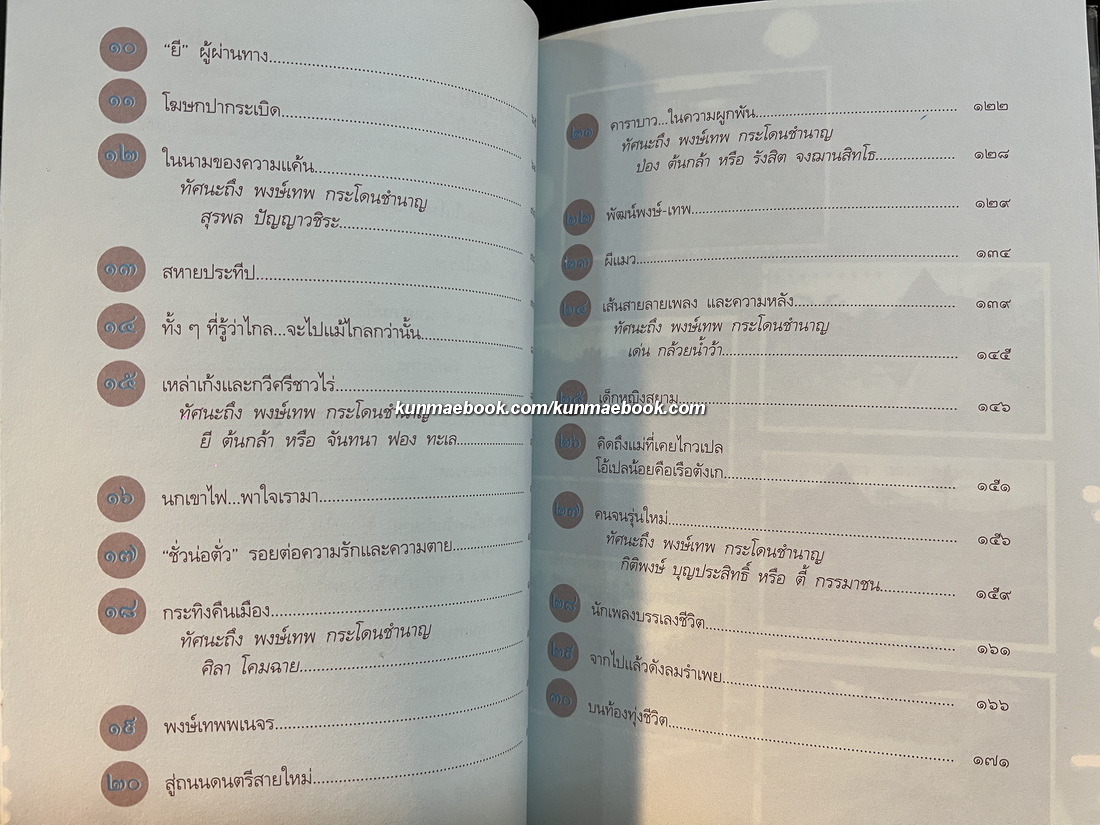 ๑๐ “ยี” ผู้ผ่านทาง
๑๑ โฆษกปากระเบิด
๑๒ ในนามของความแค้น
ทัศนะถึง พงษ์เทพ กระโดนชำนาญ
สุรพล ปัญญาวชิระ
๑๓ สหายประทีป
๑๔ ทั้ง ๆ ที่รู้ว่าไกล...จะไปแม้ไกลกว่านั้น
๑๕ เหล่าเก้งและกวีศรีชาวไร่
ทัศนะถึง พงษ์เทพ กระโดนชำนาญ
ยี ต้นกล้า หรือ จันทนา ฟอง ทะเล
๑๖ นกเขาไฟ...พาใจเรามา
๑๗ “ชั่วน่อตั่ว” รอยต่อความรักและความตาย
๑๘ กระทิงคืนเมือง
ทัศนะถึง พงษ์เทพ กระโดนชำนาญ
ศิลา โคมฉาย
๑๙ พงษ์เทพพเนจร
๒๐ สู่ถนนดนตรีสายใหม่
๒๑ คาราบาว...ในความผูกพัน ๑๒๒
ทัศนะถึง พงษ์เทพ กระโดนชำนาญ
ป่อง ต้นกล้า หรือ รังสิต จงฌานสิทโธ ๑๒๘
๒๒ พัฒน์พงษ์-เทพ ๑๒๙
๒๓ ผีแมว ๑๓๔
๒๔ เส้นสายลายเพลง และความหลัง ๑๓๙
ทัศนะถึง พงษ์เทพ กระโดนชำนาญ
เด่น กล้วยน้ำว้า ๑๔๕
๒๕ เด็กหญิงสยาม ๑๔๖
kunmaebook.com/kunmaebook.com
๒๖ คิดถึงแม่ที่เคยไกวเปล
โอ้เปลน้อยคือเรือตังเก ๑๕๑
๒๗ คนจนรุ่นใหม่ ๑๕๖
ทัศนะถึง พงษ์เทพ กระโดนชำนาญ
กิติพงษ์ บุญประสิทธิ์ หรือ ตี้ กรรมาชน ๑๕๙
๒๘ นักเพลงบรรเลงชีวิต ๑๖๑
๒๙ จากไปแล้วดังลมรำเพย ๑๖๖
๓๐ บนท้องทุ่งชีวิต ๑๗๑